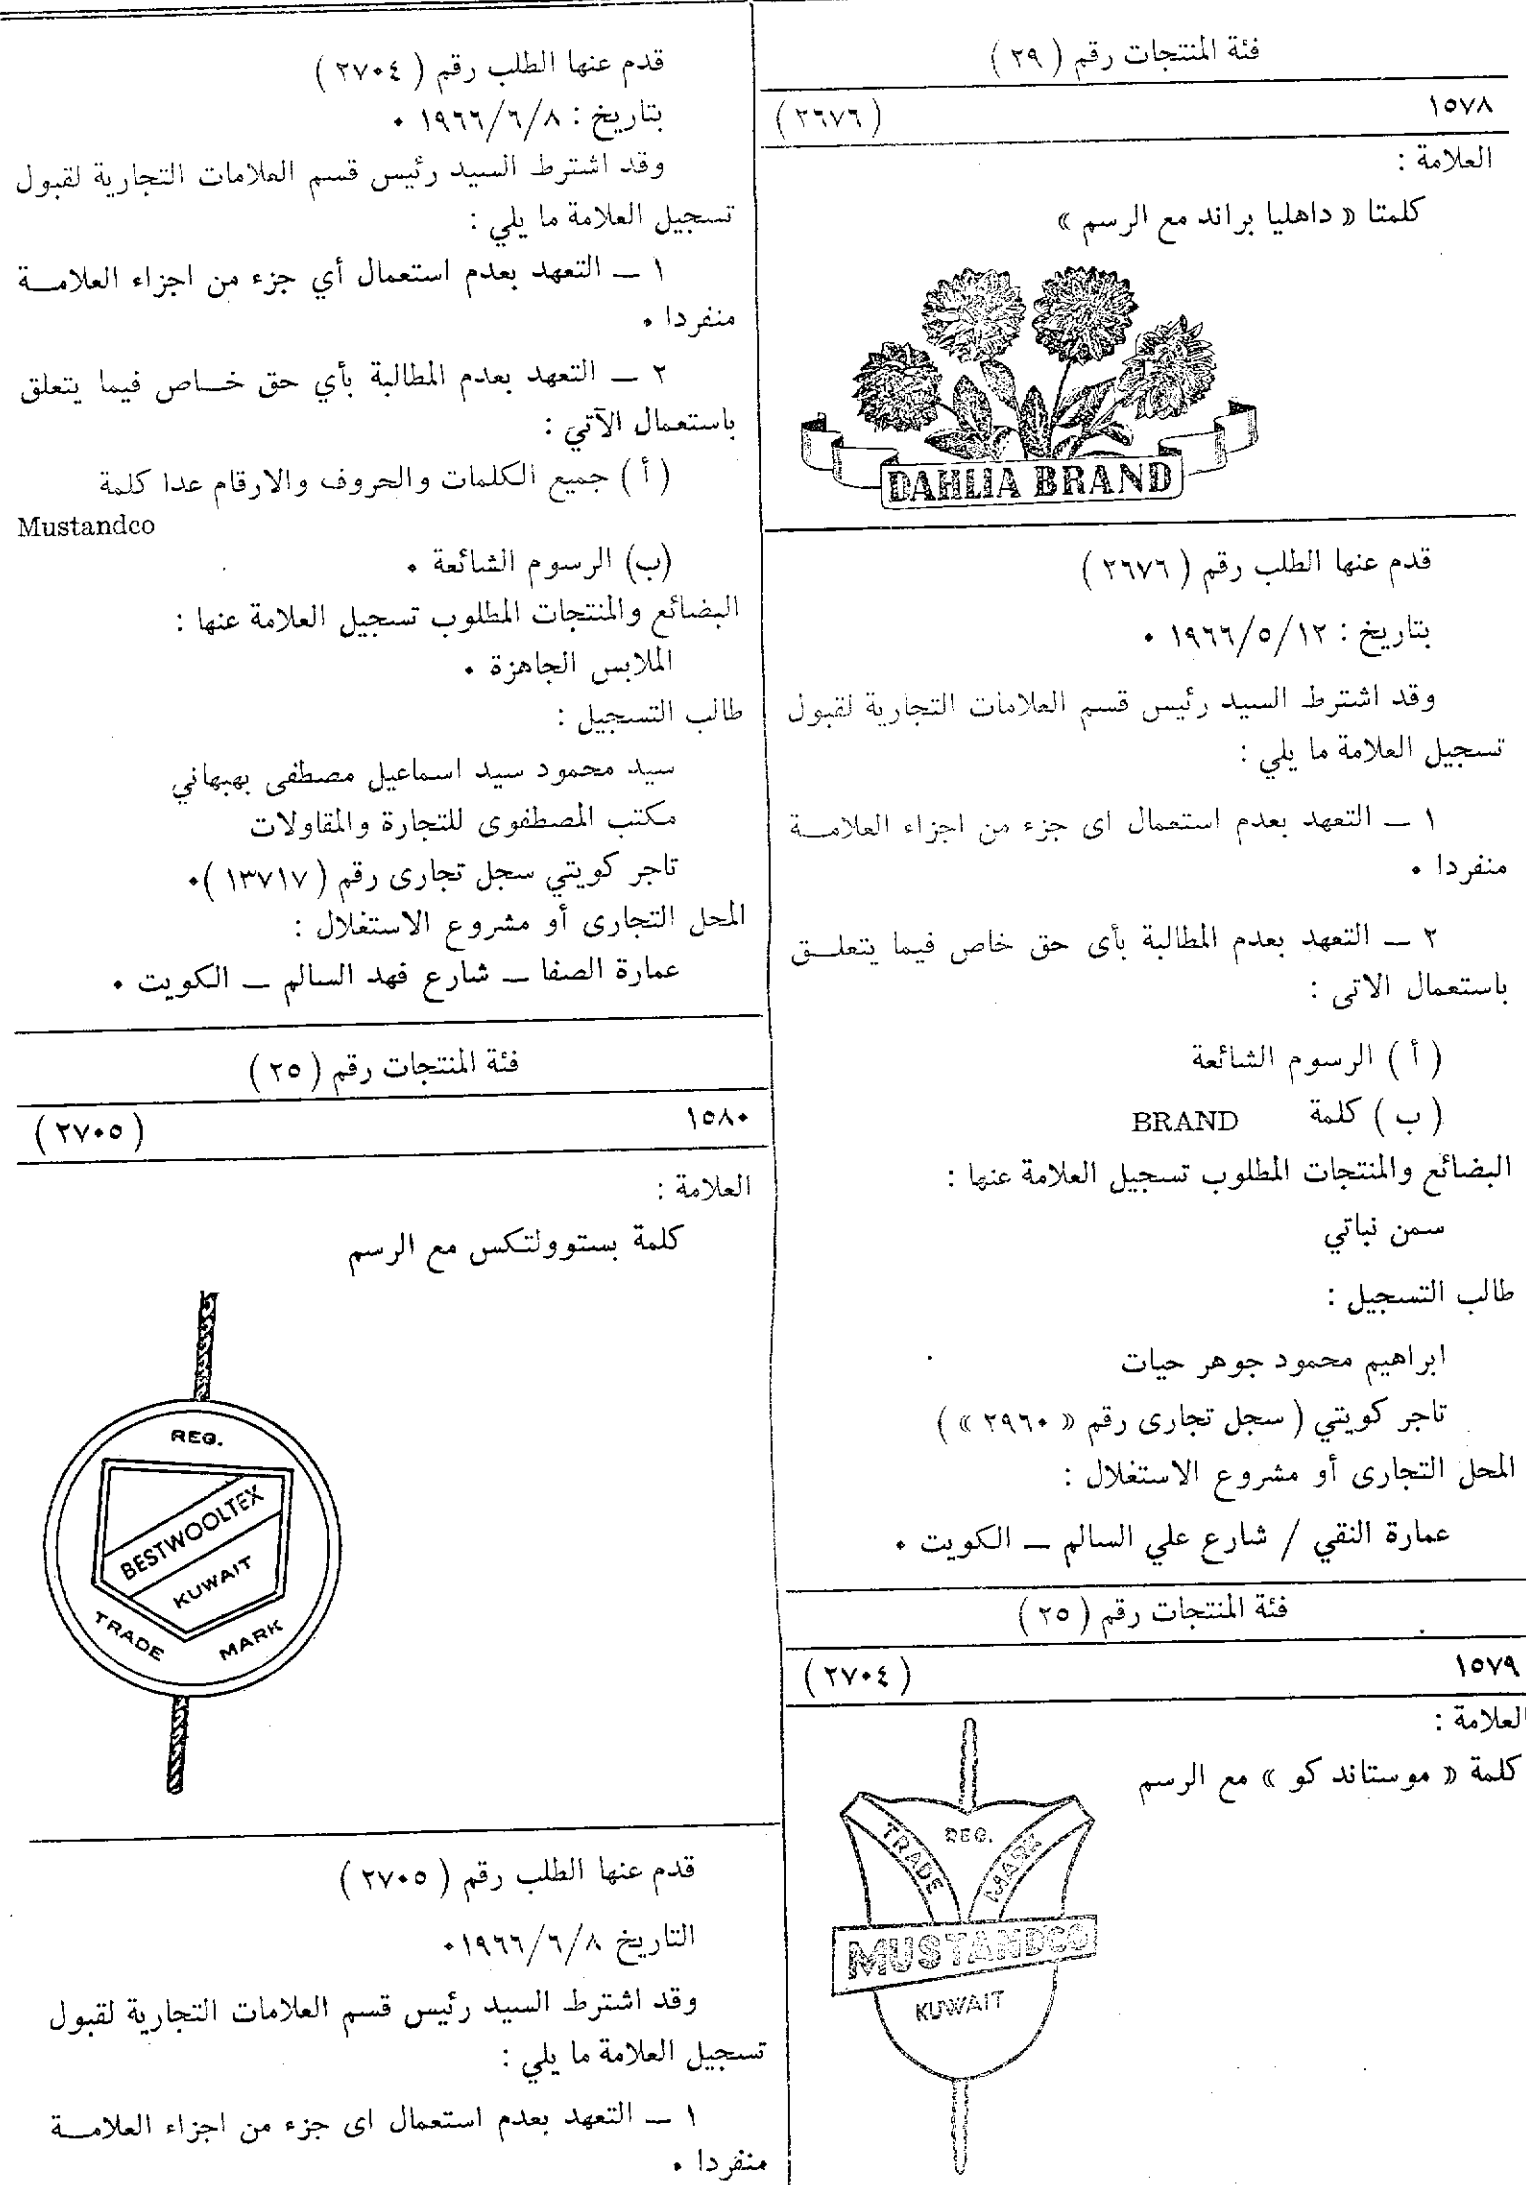 فئة المنتجات رقم ( ٢٩ )
١٥٧٨ ( ٢٦٧٦ )
العلامة :
كلمتا « داهليا براند مع الرسم »
DAHLIA BRAND
قدم عنها الطلب رقم ( ٢٦٧٦ )
بتاريخ : ١٩٦٦/٥/١٢ ٠
وقد اشترط السيد رئيس قسم العلامات التجارية لقبول
تسجيل العلامة ما يلي :
١ ــ التعهد بعدم استعمال اى جزء من اجزاء العلامــة
منفردا ٠
٢ ــ التعهد بعدم المطالبة بأى حق خاص فيما يتعلــق
باستعمال الاتى :
( أ ) الرسوم الشائعة
( ب ) كلمة BRAND
البضائع والمنتجات المطلوب تسجيل العلامة عنها :
سمن نباتي
طالب التسجيل :
ابراهيم محمود جوهر حيات
تاجر كويتي ( سجل تجارى رقم « ٢٩٦٠ » )
المحل التجارى أو مشروع الاستغلال :
عمارة النقي / شارع علي السالم ــ الكويت ٠
فئة المنتجات رقم ( ٢٥ )
١٥٧٩ ( ٢٧٠٤ )
العلامة :
كلمة « موستاند كو » مع الرسم
REG.
TRADE MARK
MUSTANDCO
KUWAIT
قدم عنها الطلب رقم ( ٢٧٠٤ )
بتاريخ : ١٩٦٦/٦/٨ ٠
وقد اشترط السيد رئيس قسم العلامات التجارية لقبول
تسجيل العلامة ما يلي :
١ ــ التعهد بعدم استعمال أي جزء من اجزاء العلامــة
منفردا ٠
٢ ــ التعهد بعدم المطالبة بأي حق خــاص فيما يتعلق
باستعمال الآتي :
( أ ) جميع الكلمات والحروف والارقام عدا كلمة
Mustandco
(ب) الرسوم الشائعة ٠
البضائع والمنتجات المطلوب تسجيل العلامة عنها :
الملابس الجاهزة ٠
طالب التسجيل :
سيد محمود سيد اسماعيل مصطفى بهبهاني
مكتب المصطفوى للتجارة والمقاولات
تاجر كويتي سجل تجارى رقم ( ١٣٧١٧ )٠
المحل التجارى أو مشروع الاستغلال :
عمارة الصفا ــ شارع فهد السالم ــ الكويت ٠
فئة المنتجات رقم ( ٢٥ )
١٥٨٠ ( ٢٧٠٥ )
العلامة :
كلمة بستوولتكس مع الرسم
REG.
BESTWOOLTEX
KUWAIT
TRADE MARK
قدم عنها الطلب رقم ( ٢٧٠٥ )
التاريخ ١٩٦٦/٦/٨٠
وقد اشترط السيد رئيس قسم العلامات التجارية لقبول
تسجيل العلامة ما يلي :
١ ــ التعهد بعدم استعمال اى جزء من اجزاء العلامــة
منفردا ٠